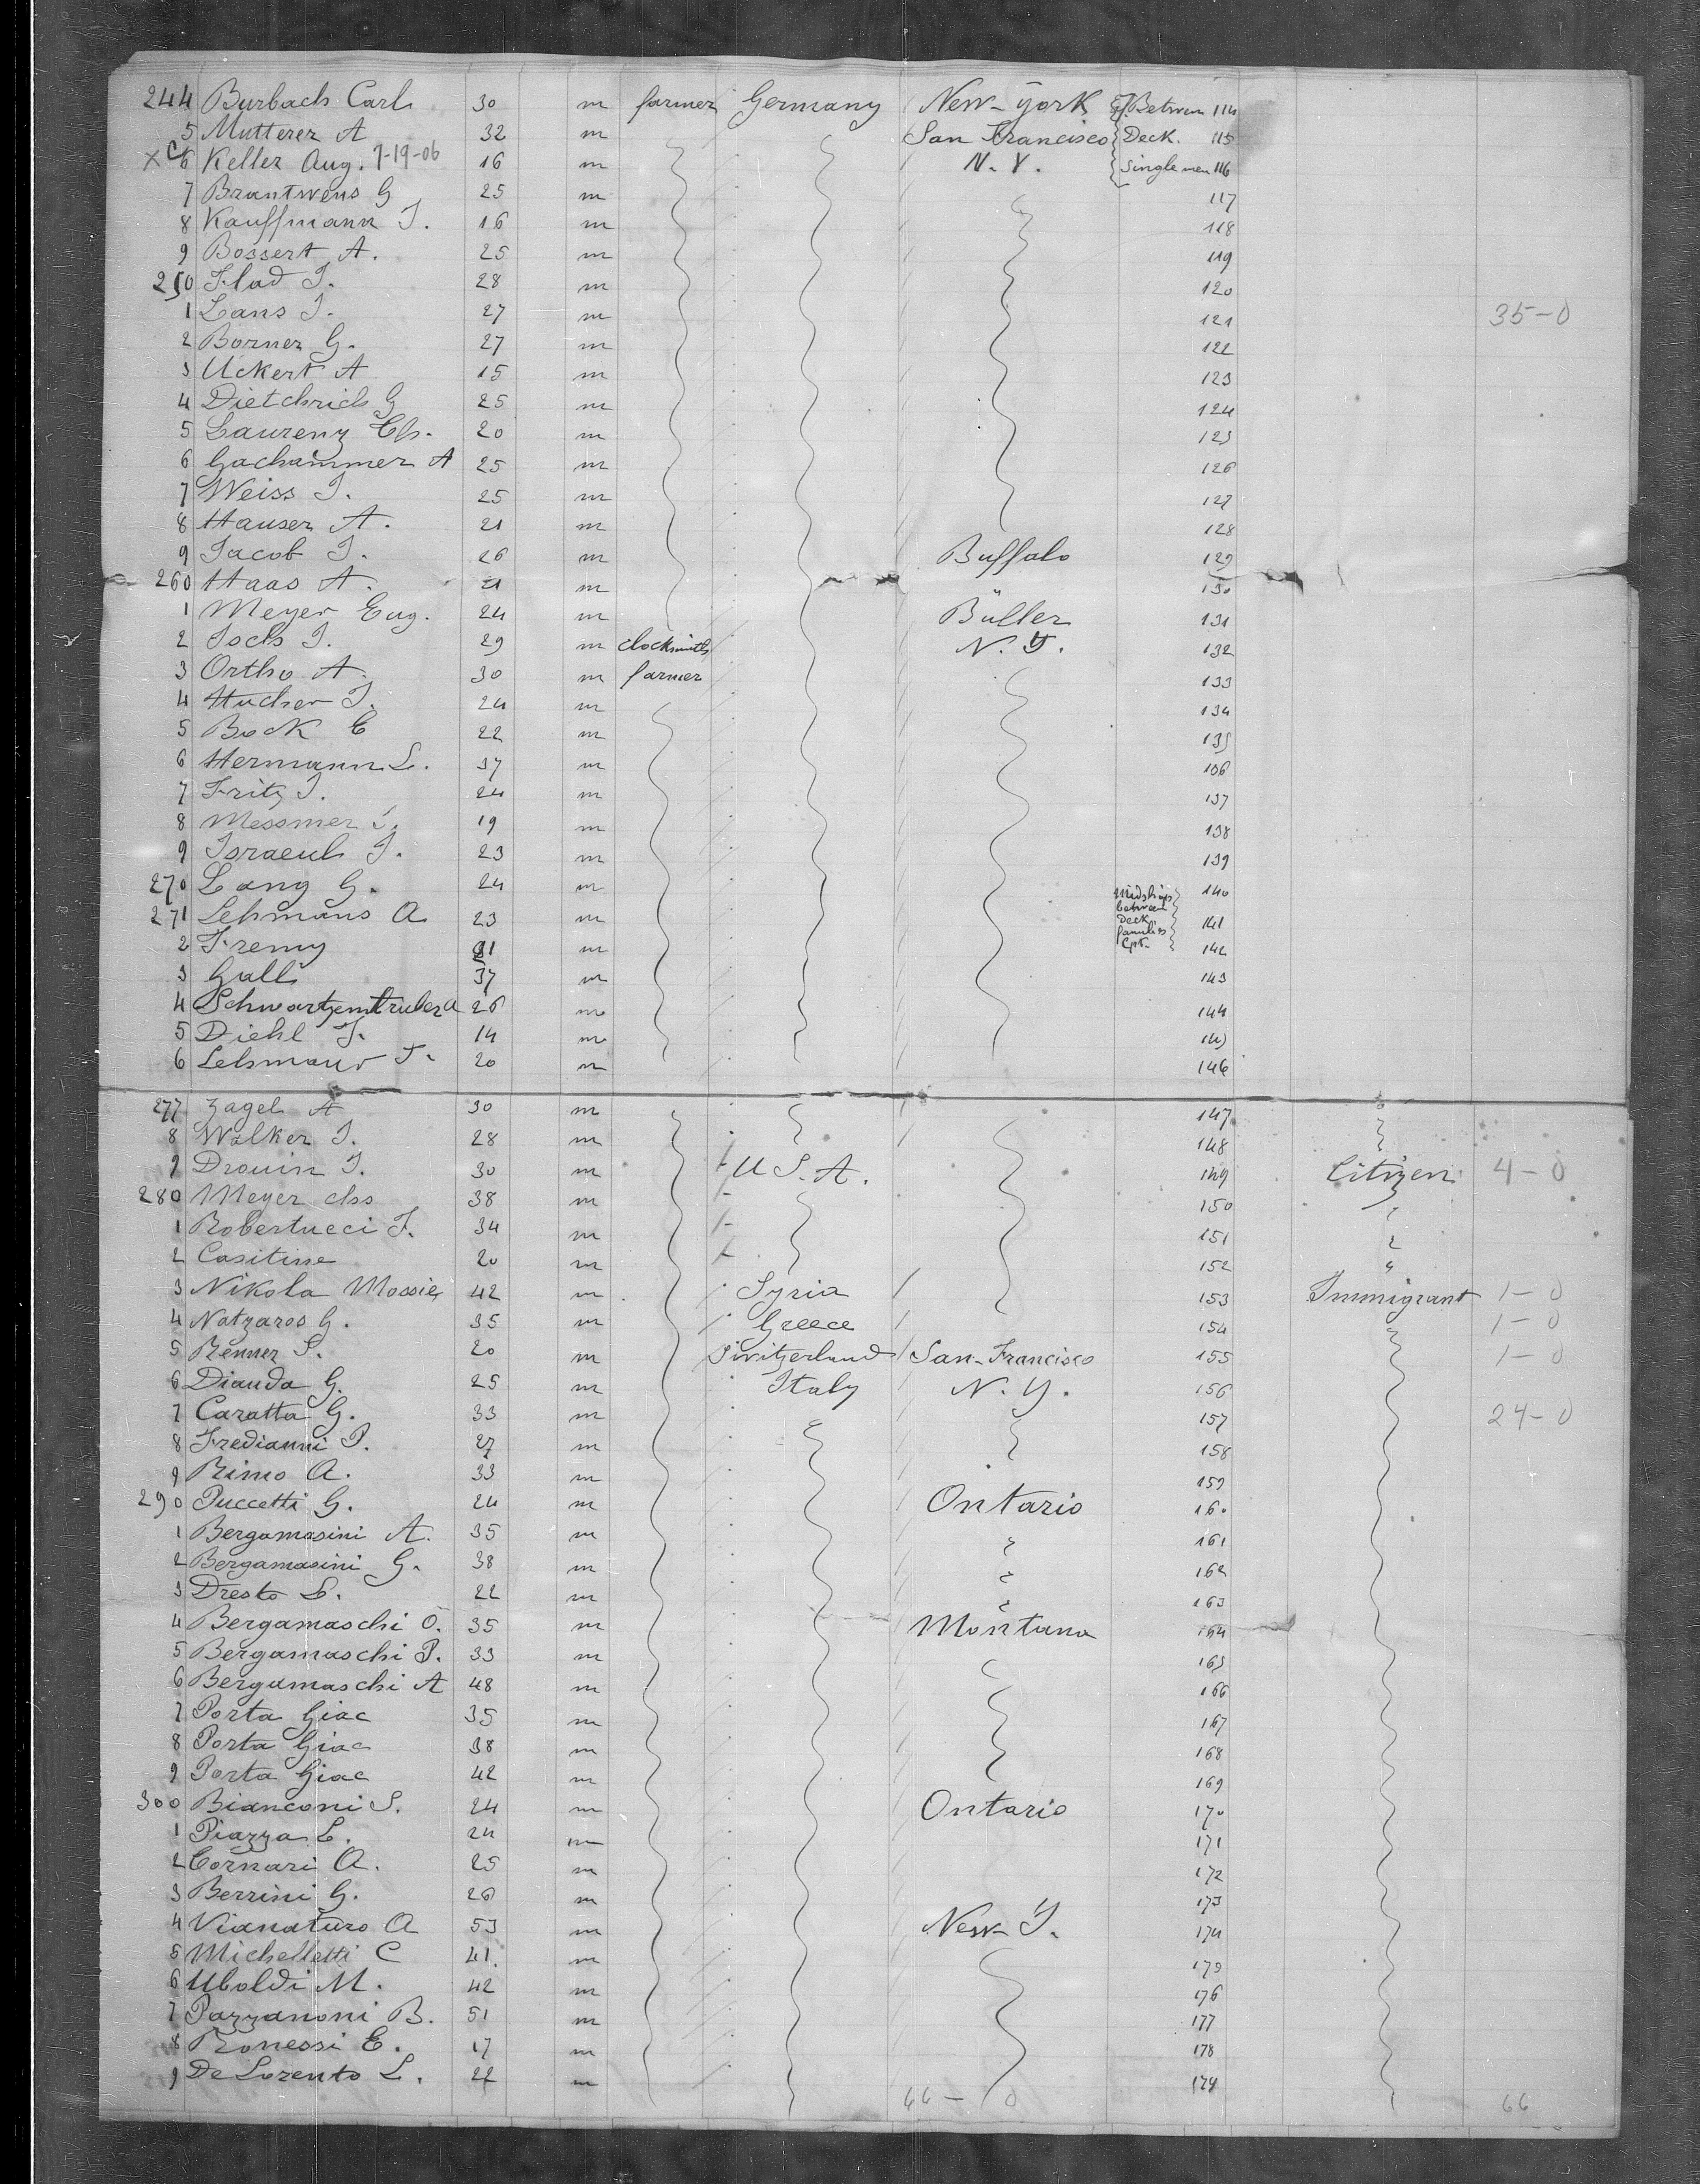 244 Burbach Carl 30 m farmer Germany New-York Between 114
5 Mutterer A 32 m San Francisco Deck. 115
x C 6 Keller Aug. 7-19-06 16 m N. Y. Single men 116
7 Brantwens G 25 m 117
8 Kauffmann J. 16 m 118
9 Bossert A. 25 m 119
250 Flad J. 28 m 120
1 Lans J. 27 m 121 35-0
2 Borner G. 27 m 122
3 Uckert A 15 m 123
4 Dietchrich G 25 m 124
5 Laurenz Ch. 20 m 125
6 Gachammer A 25 m 126
7 Weiss J. 25 m 127
8 Hauser A. 21 m 128
9 Jacob J. 26 m Buffalo 129
260 Haas A. 21 m " 130
1 Meyer Eug. 24 m Buller 131
2 Joch J. 29 m clocksmith N. Y. 132
3 Ortho A. 30 m farmer 133
4 Hucher J. 24 m 134
5 Bock E 22 m 135
6 Hermann L. 37 m 136
7 Fritz J. 24 m 137
8 Messmer 19 m 138
9 Israeul J. 23 m 139
270 Lang G. 24 m Midships 140
between
271 Lehmans A 23 m Deck 141
families
2 Fremy 31 m Cpt. 142
3 Galli 37 m 143
4 Schwartzentruber A 26 m 144
5 Diehl J. 14 m 145
6 Lehmann J. 20 m 146
277 Zagel A 30 m 147
8 Walker J. 28 m 148
9 Drouin J. 30 m U. S. A. 149 Citizen 4-0
280 Meyer chs 38 m 150 "
1 Robertucci F. 34 m 151 "
2 Casitine 20 m 152 "
3 Nikola Mossie 42 m Syria 153 Immigrant 1-0
4 Natzaros G. 35 m Greece 154 1-0
5 Renner S. 20 m Switzerland San-Francisco 155 1-0
6 Dianda G. 25 m Italy N. Y. 156
7 Caratta G. 33 m 157 24-0
8 Fredianni P. 27 m 158
9 Rimo A. 33 m 159
290 Puccetti G. 24 m Ontario 160
1 Bergamasini A. 35 m " 161
2 Bergamasini G. 38 m " 162
3 Dresto L. 22 m " 163
4 Bergamaschi O. 35 m Montana 164
5 Bergamaschi P. 33 m 165
6 Bergamaschi A 48 m 166
7 Porta Giac 35 m 167
8 Porta Giac 38 m 168
9 Porta Giac 42 m 169
300 Bianconi S. 24 m Ontario 170
1 Piazza L. 24 m 171
2 Cornari A. 25 m 172
3 Berrini G. 26 m 173
4 Vianaturo A 53 m New-Y. 174
5 Michelletti C 41 m 175
6 Uboldi M. 42 m 176
7 Pazzanoni B. 51 m 177
8 Ronessi E. 17 m 178
9 De Lorento L. 22 m 179
66-0 66